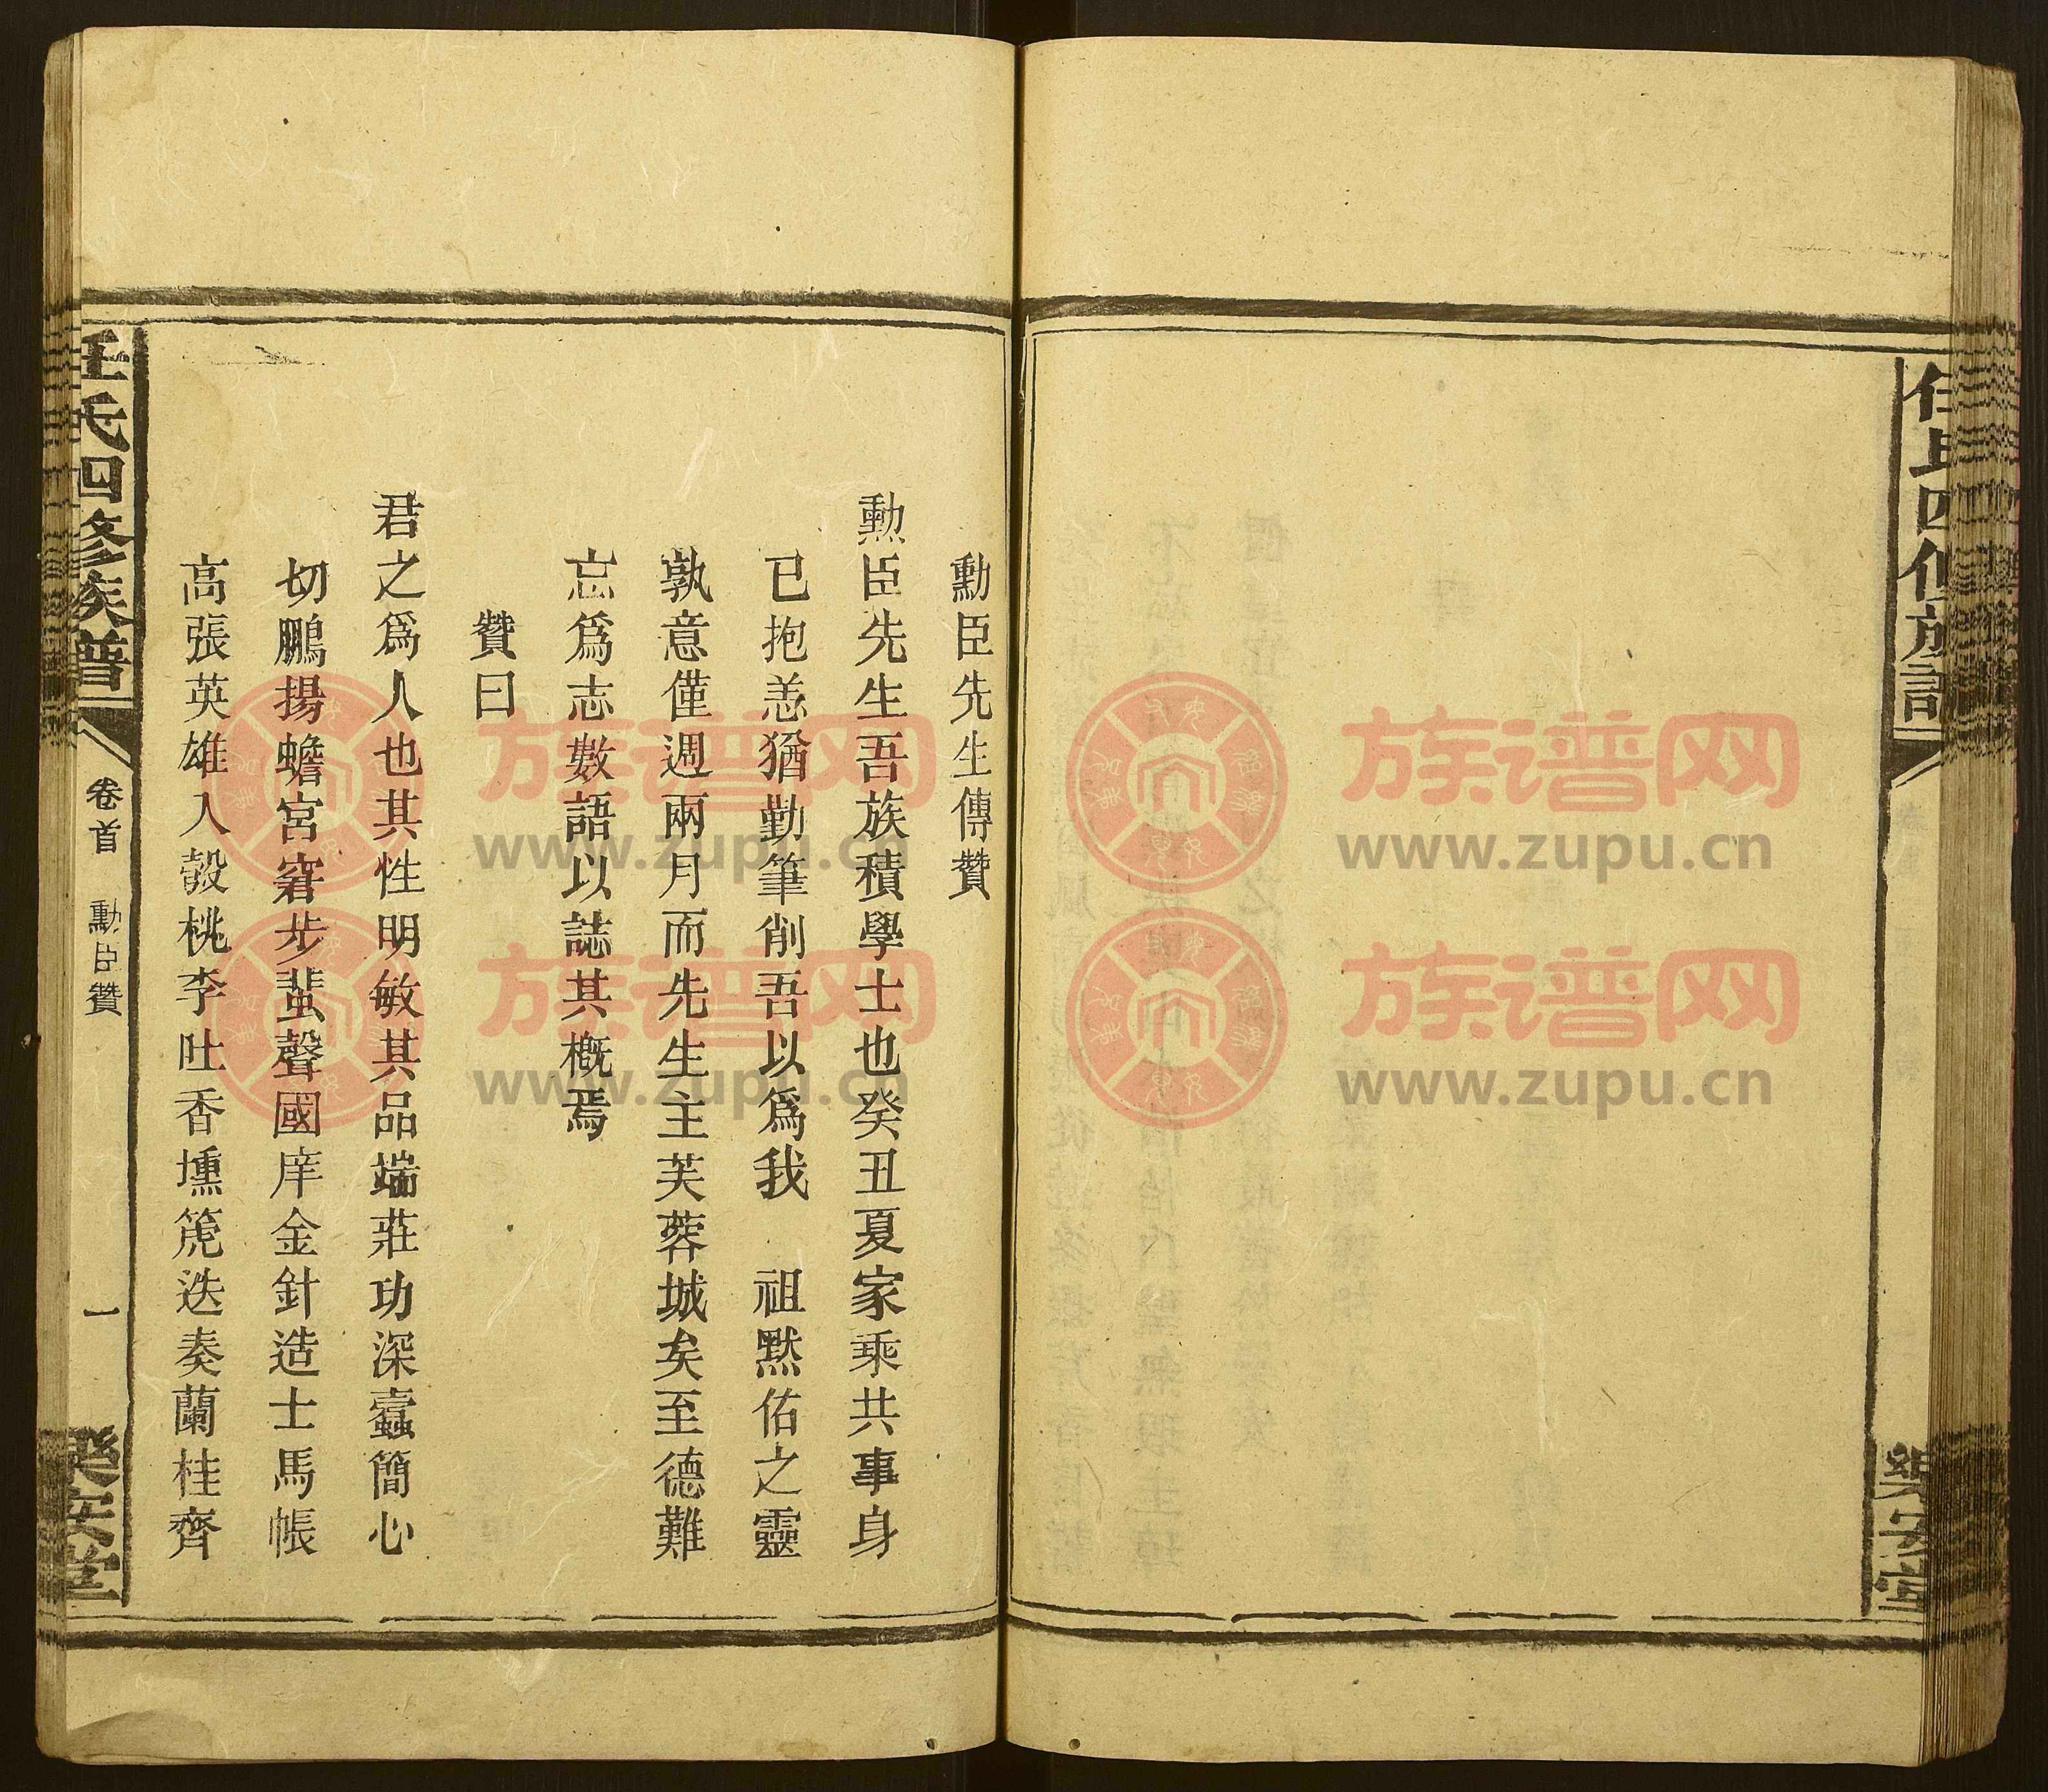 任氏四修族譜
樂安堂
勳臣先生傳贊
勳臣先生吾族積學士也癸丑夏家乘共事身
已抱恙猶勤筆削吾以為我 祖默佑之靈
孰意僅週兩月而先生主芙蓉城矣至德難
忘為志數語以誌其概焉
贊曰
君之為人也其性明敏其品端莊功深蠹簡心
切鵬揚蟾宮窘步蜚聲國庠金針造士馬帳
高張英雄入彀桃李吐香壎篪迭奏蘭桂齊
任氏四修族譜
卷首 勳臣贊
一
樂安堂
族谱网
www.zupu.cn
族谱网
www.zupu.cn
族谱网
www.zupu.cn
族谱网
www.zupu.cn